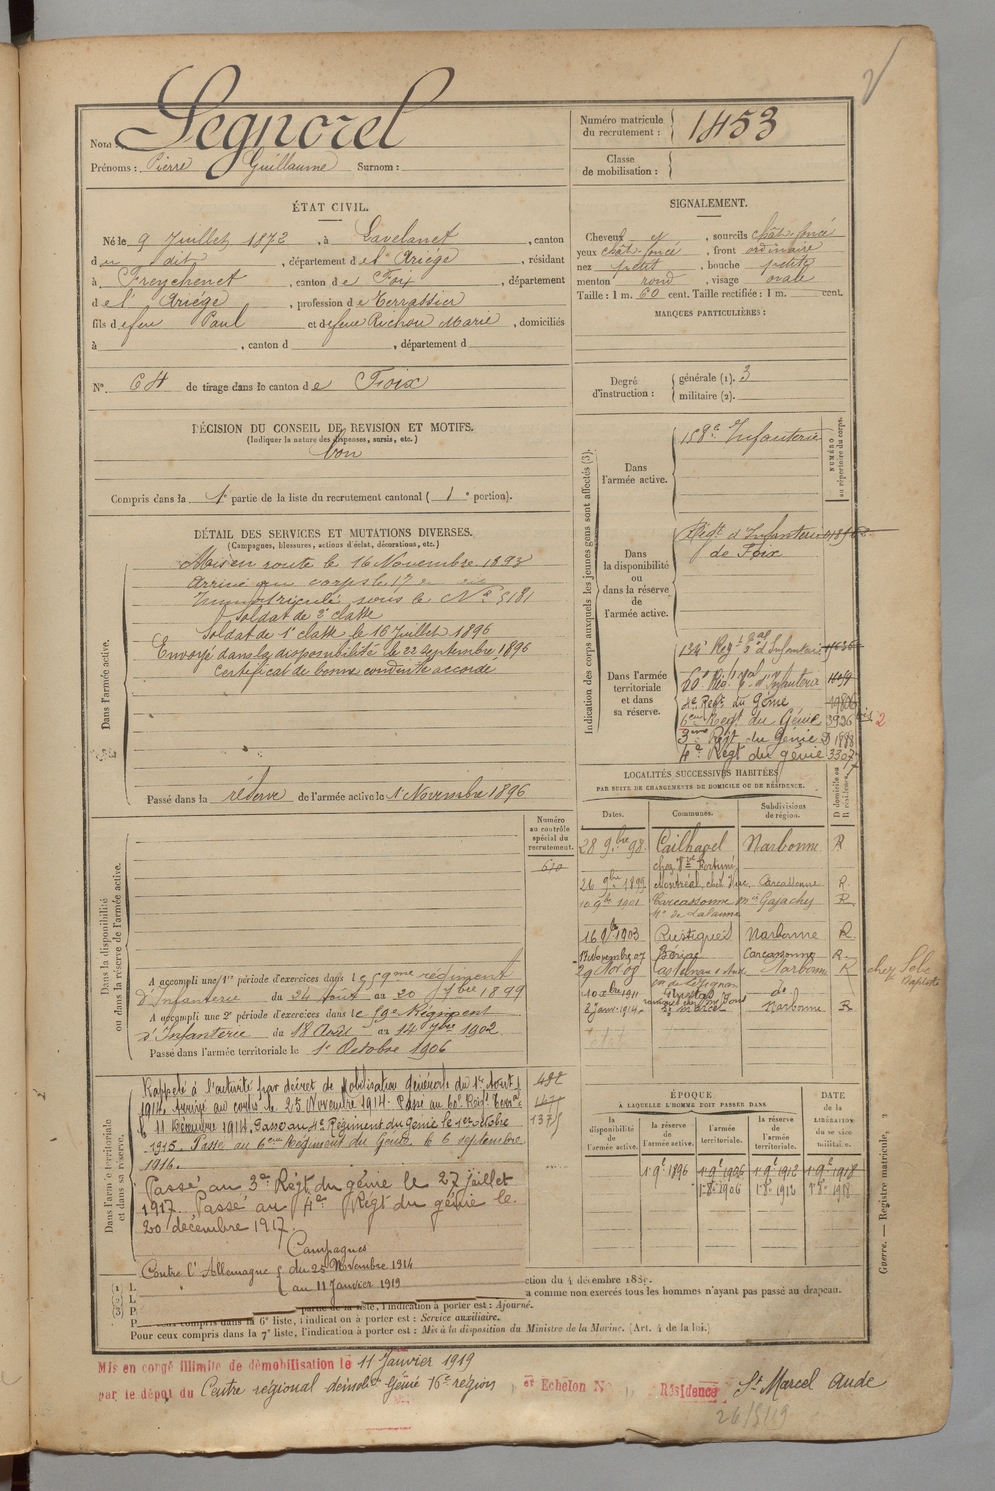 Nom : Segnorel
Prénoms : Pierre Guillaume Surnom :
Numéro matricule du recrutement : 1453
Classe de mobilisation :
ÉTAT CIVIL.
Né le 9 Juillet 1872, à Lavelanet, canton
d dit, département de l'Ariège, résidant
à Freychenet, canton de Foix, département
de l'Ariège, profession de Terrassier
fils de feu Paul et de feue Richou Marie, domiciliés
à , canton d , département d
N° 64 de tirage dans le canton de Foix
DÉCISION DU CONSEIL DE REVISION ET MOTIFS.
(Indiquer la nature des dispenses, sursis, etc.)
bon
Compris dans la 1e partie de la liste du recrutement cantonal ( 1e portion).
SIGNALEMENT.
Cheveux et , sourcils chât. foncé
yeux chât. foncé , front ordinaire
nez petit , bouche petite
menton rond , visage ovale
Taille : 1 m. 60 cent. Taille rectifiée : 1 m. cent.
MARQUES PARTICULIÈRES :
Degré d'instruction : générale (1). 3
militaire (2).
DÉTAIL DES SERVICES ET MUTATIONS DIVERSES.
(Campagnes, blessures, actions d'éclat, décorations, etc.)
Dans l'armée active.
Mis en route le 16 Novembre 1893
Arrivé au corps le 17
Immatriculé sous le N° 5181
Soldat de 2e classe
Soldat de 1e classe le 16 Juillet 1896
Envoyé dans la disponibilité le 22 septembre 1896
Certificat de bonne conduite accordé
Passé dans la réserve de l'armée active le 1 Novembre 1896
Indication des corps auxquels les jeunes gens sont affectés (3).
NUMÉRO au répertoire du corps.
Dans l'armée active.
158e Infanterie
Dans la disponibilité ou dans la réserve de l'armée active.
Régt d'Infanterie
de Foix
Dans l'armée territoriale et dans sa réserve.
134e Regt tal d'Infanterie
60e Régt tal d'Infanterie
4e Regt du Génie
6eme Regt du Génie 3936 bis 2
3eme Régt du Génie
4e Régt du génie 3307
LOCALITÉS SUCCESSIVES HABITÉES
PAR SUITE DE CHANGEMENTS DE DOMICILE OU DE RÉSIDENCE.
Dates. Communes. Subdivisions de région. D domicile ou R résidence.
28 9bre 98 Cailhavel Narbonne R
chez Vve Fortuné
26 9bre 1899 Montréal, chez Carcassonne R
10 9bre 1901 Carcassonne Mis Gajachy R
de Lalanne
1903 Rustiques Narbonne R
17 Novembre 07 Carcassonne R
29 Nov 08 Narbonne R chez Baptiste
1911
2 Janv. 1914 St Marcel Narbonne R
Numéro au contrôle spécial du recrutement.
Dans la disponibilité ou dans la réserve de l'armée active.
A accompli une 1re période d'exercices dans le 59me régiment
d'Infanterie du 24 Août au 20 7bre 1899
A accompli une 2e période d'exercices dans le 59e Régiment
d'Infanterie du 18 Août au 14 7bre 1902
Passé dans l'armée territoriale le 1er Octobre 1906
Dans l'armée territoriale et dans sa réserve.
Rappelé à l'activité par décret de Mobilisation Générale du 1er Août
1914. Arrivé au corps le 25 Novembre 1914. Passé au 60e Régt Terral
le 11 Décembre 1914. Passé au 4e Régiment du Génie le 1er octobre
1915. Passé au 6eme Régiment du Génie le 6 septembre
1916.
Passé au 3e Régt du génie le 27 juillet
1917. Passé au 4e Régt du génie le
20 décembre 1917.
Campagnes
Contre l'Allemagne du 25 Novembre 1914
au 11 Janvier 1919
ÉPOQUE
À LAQUELLE L'HOMME DOIT PASSER DANS
la disponibilité de l'armée active. la réserve de l'armée active. l'armée territoriale. la réserve de l'armée territoriale.
DATE de la LIBÉRATION du service militaire.
1 9e 1896 1 9e 1906 1 9e 1912 1 9e 1918
1 8e 1906 1 8e 1912 1 8e 1918
ction du 4 décembre 18
a comme non exercés tous les hommes n'ayant pas passé au drapeau.
partie de la liste, l'indication à porter est : Ajourné.
P ceux compris dans la 6e liste, l'indication à porter est : Service auxiliaire.
Pour ceux compris dans la 7e liste, l'indication à porter est : Mis à la disposition du Ministre de la Marine. (Art. 4 de la loi.)
Guerre. — Registre matricule,
Mis en congé illimité de démobilisation le 11 Janvier 1919
par le dépôt du Centre régional démobon Génie 16e région er Echelon N Résidence St Marcel Aude